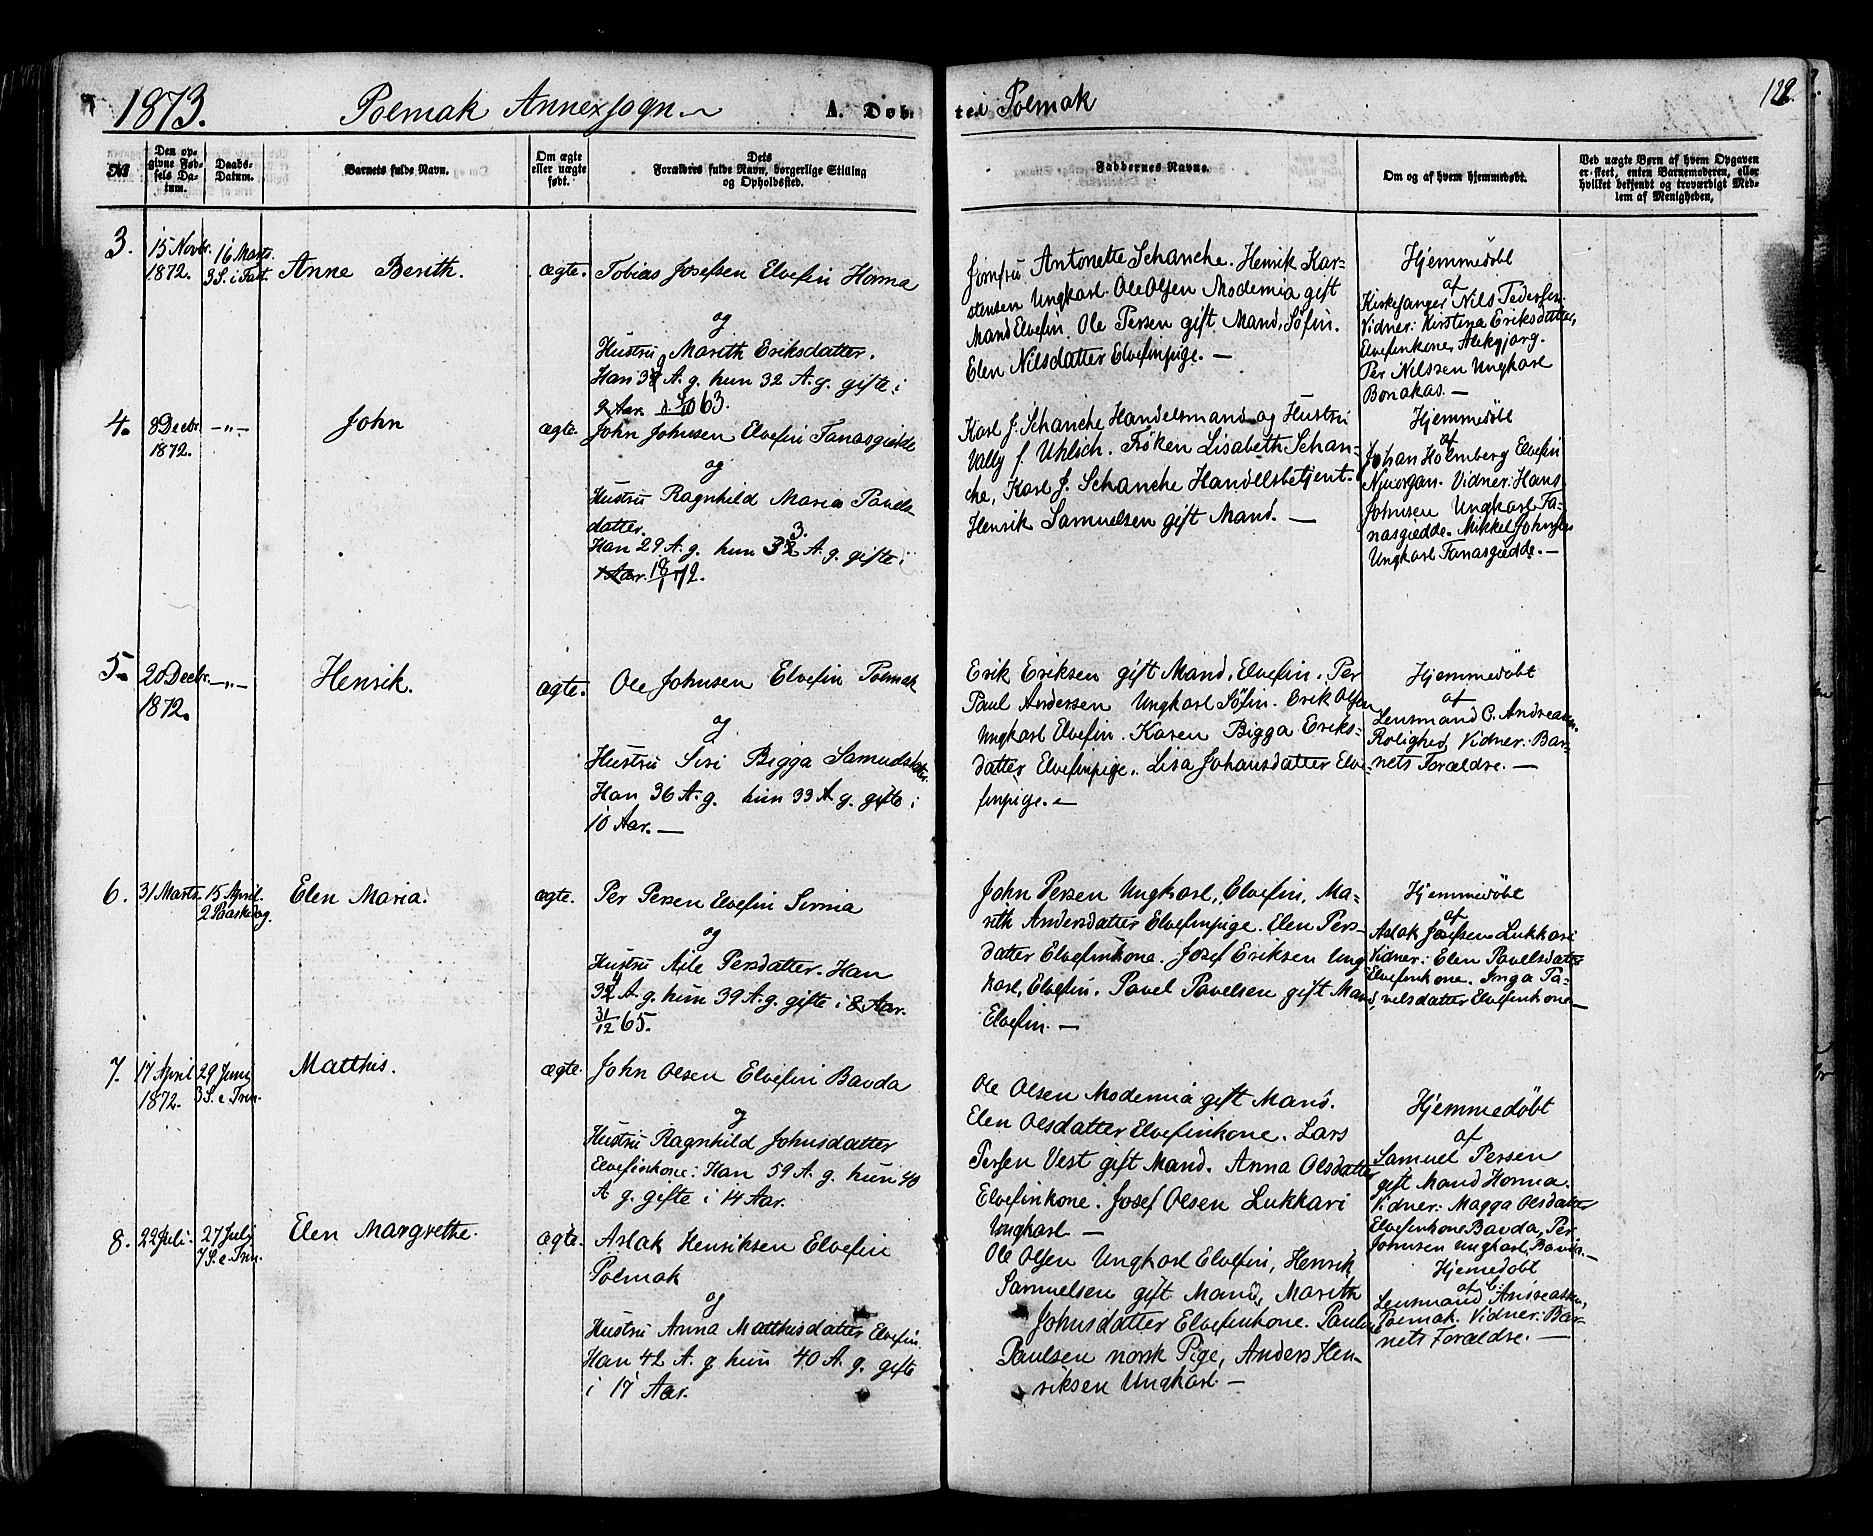 1873. Polmak Annexsogn. A. Døb-
te i Polmak 122.
No
Den op-
givne Fød-
sels Da-
tum.
Daabs-
Datum.
Barnets fulde Navn.
Om ægte
eller uægte
født.
Dets
Forældres fulde Navn, borgerlige Stilling
og Opholdssted.
Faddernes Navne.
Om og af hvem hjemmedøbt.
Ved uægte Børn af hvem Opgaven
er skeet, enten Barnemoderen, eller
hvilket bekjendt og troværdigt Med-
lem af Menigheden.
3.
15 Novbr.
1872.
16 Marts
3 S. i Fast.
Anne Berith.
ægte.
Tobias Josefsen Elvefin Horma
og
Hustru Marith Eriksdatter.
Han A. g. hun 32 A. g. gifte i
9 Aar. 63.
Jomfru Antonette Schanche. Henrik Kar-
stensen Ungkarl. Ole Olsen Modemia gift
Mand Elvefin. Ole Persen gift Mand, Søfin.
Elen Nilsdatter Elvefinpige. —
Hjemmedøbt
af
Kirkesanger Nils Pedersen.
Vidner: Kirstina Eriksdatter,
Elvefinkone, Alekgjarg.
Per Nilssen Ungkarl
Bonakas. —
4.
8 Decbr.
1872.
—„—
John
ægte.
John Johnsen Elvefin Tanasgiedde
og
Hustru Ragnhild Maria Pauls-
datter.
Han 29 A. g. hun 33 A. g. gifte i
1 Aar. 18/1 72.
Karl J. Schanche Handelsmand og Hustru
Vally f. Uhlich. Frøken Lisabeth Schan-
che, Karl J. Schanche Handelsbetjent.
Henrik Samuelsen gift Mand. —
Hjemmedøbt
af
Johan Holmberg Elvefin
Njuorgan. Vidner: Hans
Johnsen Ungkarl Ta-
nasgiedde. Mikkel Johnsen
Ungkarl Tanasgiedde. —
5.
20 Decbr.
1872.
—„—
Henrik.
ægte.
Ole Johnsen Elvefin Polmak
og
Hustru Siri Bigga Samuelsdatter.
Han 36 A. g. hun 33 A. g. gifte i
10 Aar. —
Erik Eriksen gift Mand, Elvefin. Per
Paul Andersen Ungkarl Søfin. Erik Olsen
Ungkarl Elvefin. Karen Bigga Eriks-
datter Elvefinpige. Lisa Johansdatter Elve-
finpige. —
Hjemmedøbt
af
Lensmand C. Andreassen.
Rolighed, Vidner: Bar-
nets Forældre. —
6.
31 Marts
15 April.
2 Paaskedag.
Elen Maria.
ægte.
Per Persen Elvefin Sirma
og
Hustru Aile Persdatter. Han
A. g. hun 39 A. g. gifte i 8 Aar.
31/12 65.
John Persen Ungkarl, Elvefin, Ma-
rith Andersdatter Elvefinpige. Elen Pers-
datter Elvefinkone. Josef Eriksen Ung-
karl, Elvefin. Pavel Pavelsen gift Mand,
Elvefin. —
Hjemmedøbt
af
Aslak Josefsen Lukkari
Vidner: Elen Pavelsdatter
Elvefinkone. Inga Pa-
velsdatter Elvefinkone —
7.
17 April
1872.
29 Juni
3 S. e Trin.
Matthis.
ægte.
John Olsen Elvefin Bavda
og
Hustru Ragnhild Johnsdatter
Elvefinkone: Han 59 A. g. hun 40
A g. gifte i 14 Aar.
Ole Olsen Modemia gift Mand.
Elen Olsdatter Elvefinkone. Lars
Persen Vest gift Mand. Anna Olsdatter
Elvefinkone. Josef Olsen Lukkari
Ungkarl —
Hjemmedøbt
af
Samuel Persen
gift Mand Horma.
Vidner: Magga Olsdatter
Elvefinkone Bavda, Per
Johnsen Ungkarl, Bavda. —
8.
22 Juli.
27 Juli
7 S. e. Trin.
Elen Margrethe.
ægte.
Aslak Henriksen Elvefin
Polmak
og
Hustru Anna Matthisdatter Elvefin.
Han 42 A. g hun 40 A. g. gifte
i 17 Aar.
Ole Olsen Ungkarl Elvefin, Henrik
Samuelsen gift Mand, Marith
Johnsdatter Elvefinkone. Paulin
Paulsen norsk Pige, Anders Hen-
riksen Ungkarl. —
Hjemedøbt
af
Lensmand C. Andreassen,
Polmak. Vidner: Bar-
nets Forældre. —